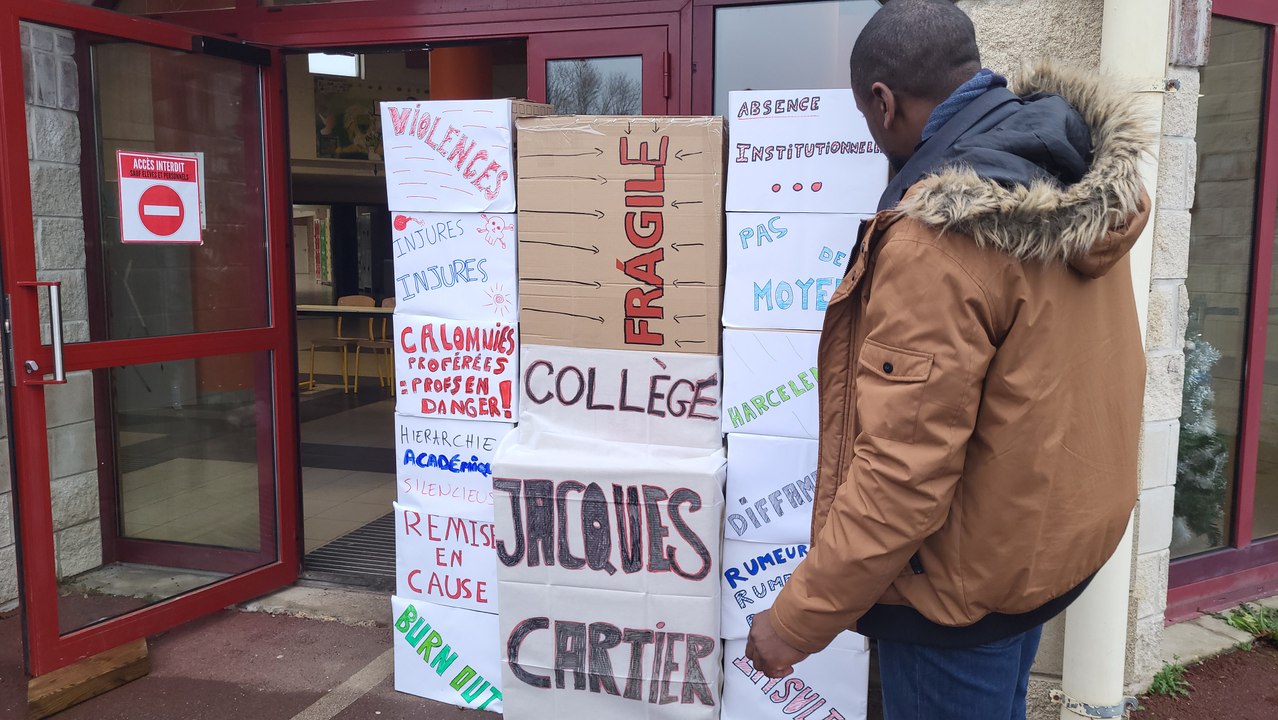 ACCÈS INTERDIT
SAUF ÉLÈVES ET PERSONNELS
VIOLENCES
INJURES
INJURES
CALOMNIES
PROFÉRÉES
= PROFS EN
DANGER!
HIERARCHIE
ACADÉMIQ
SILENCIEUS
REMISE
EN
CAUSE
BURN OUT
FRÁGILE
COLLÈGE
JACQUES
CARTIER
ABSENCE
INSTITUTIONNELL
...
PAS
DE
MOYE
HARCELE
DIFFAM
RUMEUR
RUME
INSULT